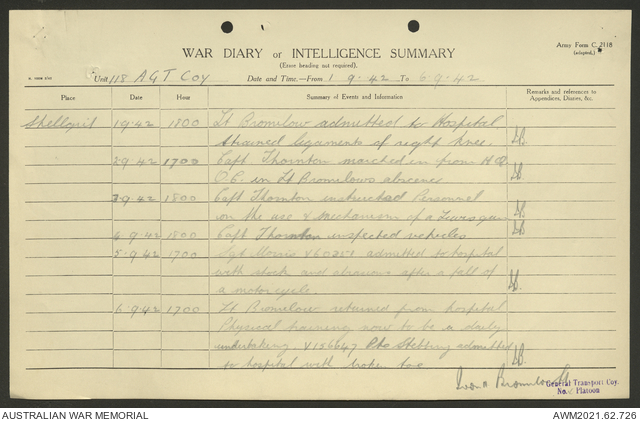 Army Form C. 2118
(adapted.)
WAR DIARY or INTELLIGENCE SUMMARY
(Erase heading not required).
Unit 118 AGT Coy Date and Time.—From 1.9.42 To 6.9.42
Place Date Hour Summary of Events and Information Remarks and references to Appendices, Diaries, &c.
1.9.42 1800 Lt Bromilow admitted to Hospital
strained ligaments of right knee.
2.9.42 1700 Capt Thornton marched in from HQ
O.C. in Lt Bromilows absence
3.9.42 1800 Capt Thornton instructed Personnel
on the use & Mechanism of a Lewis gun
1800 Capt Thornton inspected vehicles
5.9.42 1700 Sgt Morris admitted to hospital
with shock and abrasions after a fall of
a motor cycle.
6.9.42 1700 Lt Bromilow returned from hospital
Physical training now to be a daily
undertaking. V156647 Pte Stebbing admitted
to hospital with broken toe
Bromilow Lt
General Transport Coy.
No. Platoon
AUSTRALIAN WAR MEMORIAL AWM2021.62.726